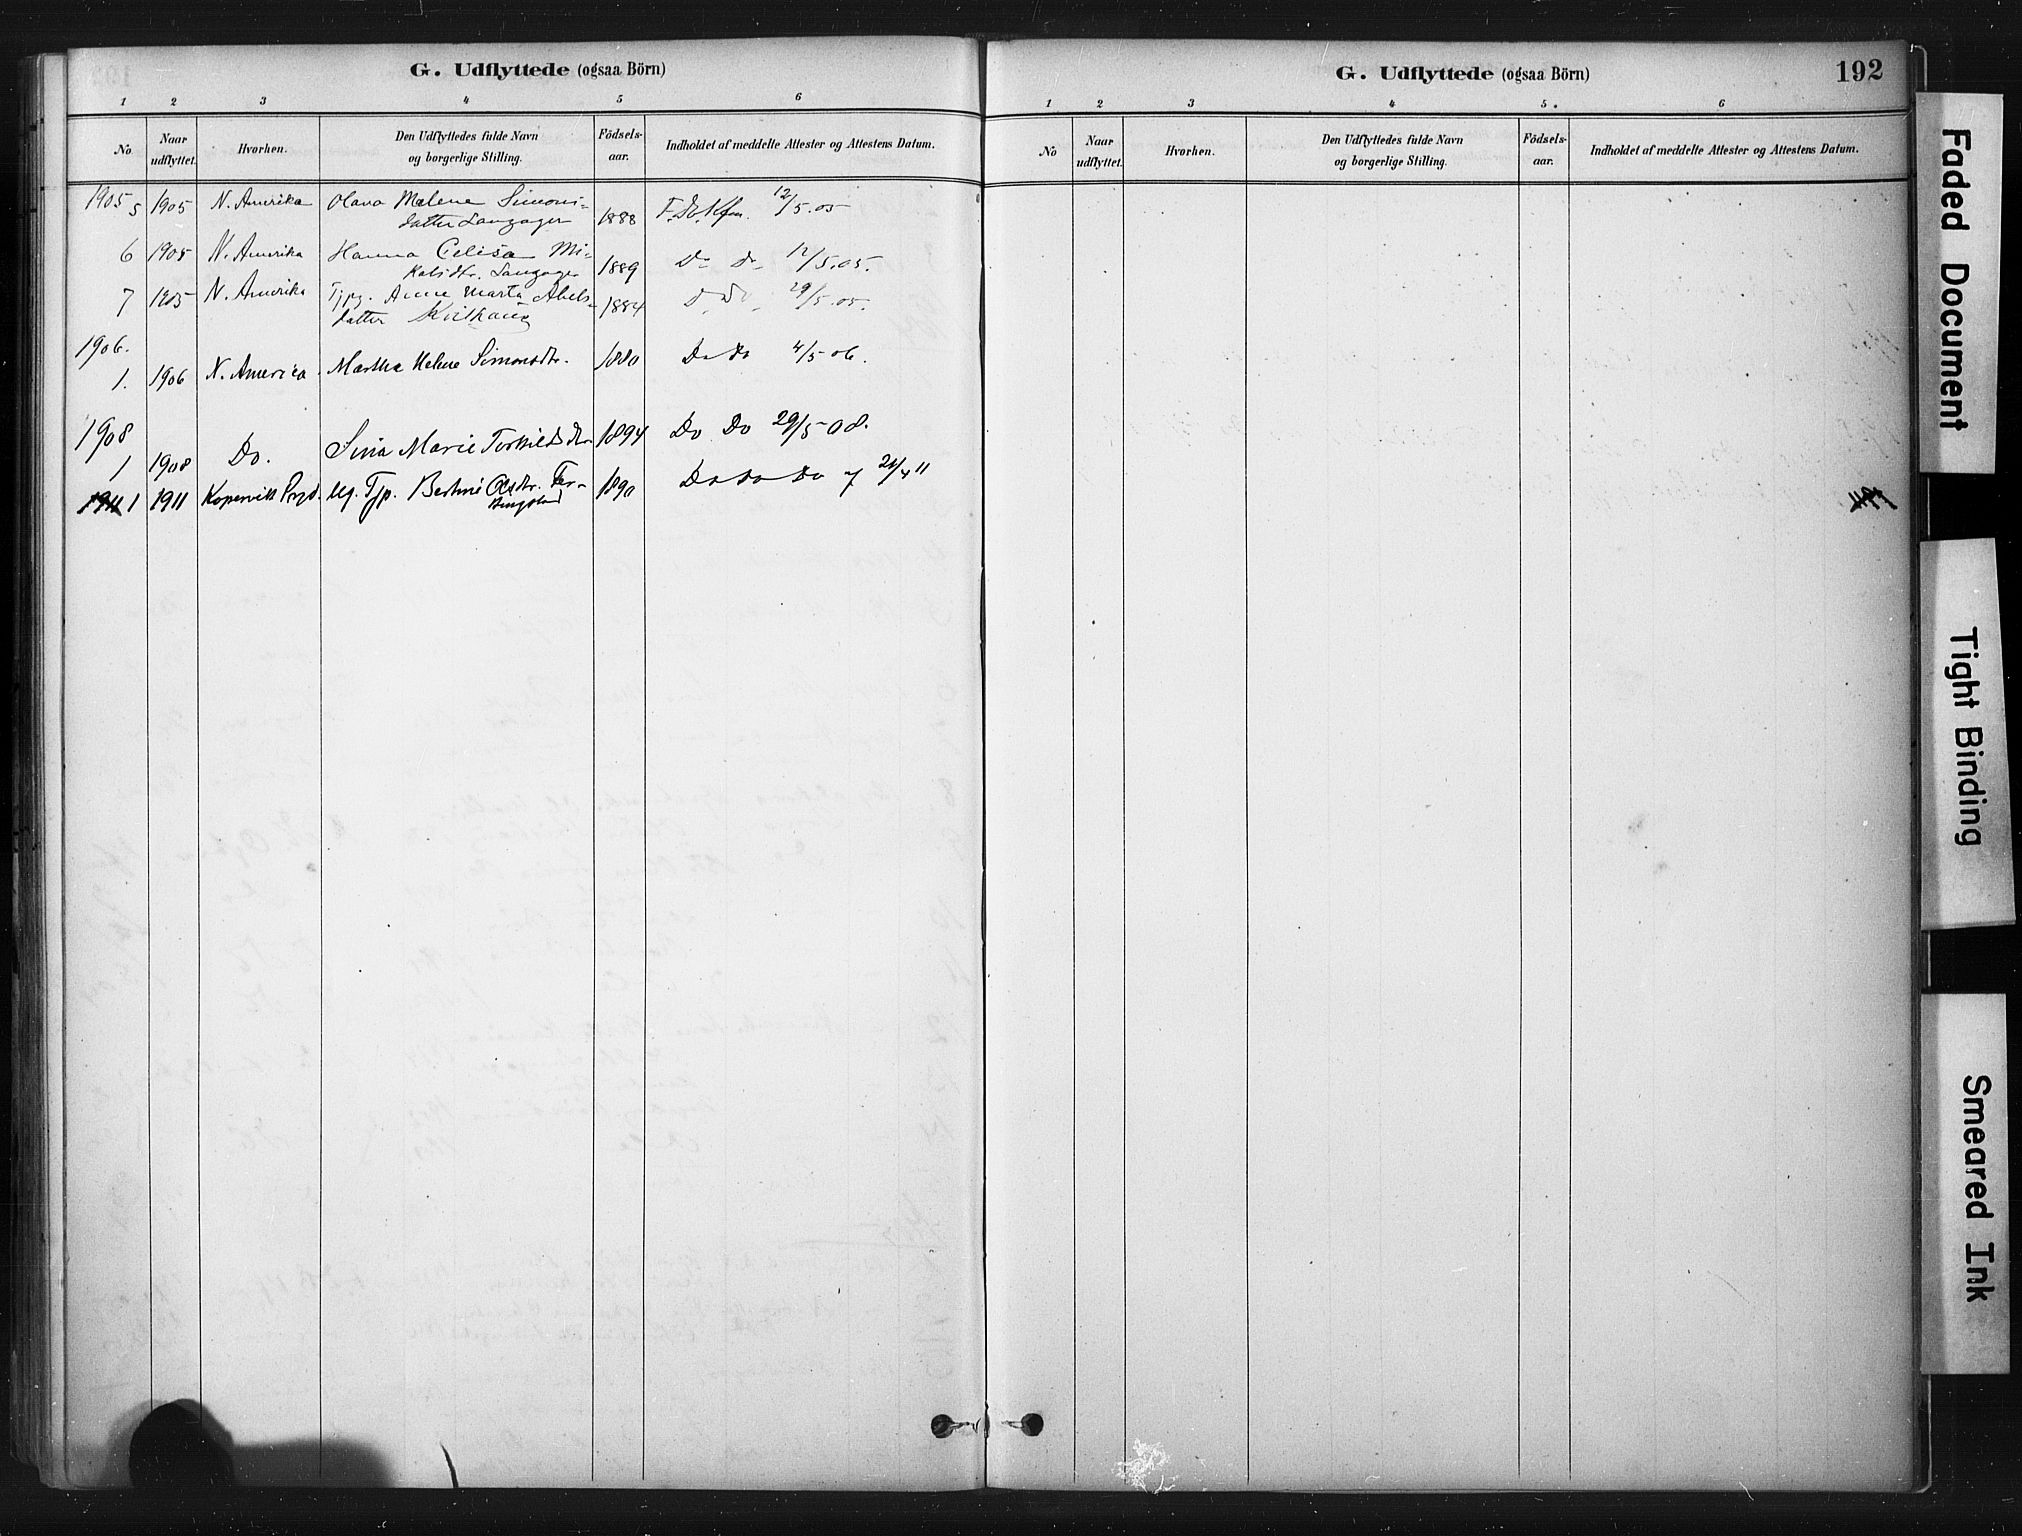 G. Udflyttede (ogsaa Börn)
1 2 3 4 5 6
No Naar udflyttet. Hvorhen. Den Udflyttedes fulde Navn og borgerlige Stilling. Födsels-aar. Indholdet af meddelte Attester og Attestens Datum.
1905 5 1905 N. Amerika Olava Malene Simons-
datter Langager 1888 12/5.05
6 1905 N. Amerika Hanna Celisa Mi-
kalsdtr. Langager 1889 Do Do 12/5.05.
7 1905 N. Amerika Tjpg. Anne Marta Abels-
datter 1884 Do Do 29/5.05.
1906.
1. 1906 N. America Martha Helene Simonsdtr. 1880 Do Do 4/5 06.
1908
1 1908 Do. Sina Marie Torkildsdtr 1894 Do Do 29/5 08.
1 1911 Kopervik Prgd. Ug. Tjp. Bertine Olsdtr. 1890 Do Do Do 21/4 11
G. Udflyttede (ogsaa Börn)
192
1 2 3 4 5. 6
No Naar udflyttet. Hvorhen. Den Udflyttedes fulde Navn og borgerlige Stilling. Födsels-aar. Indholdet af meddelte Attester og Attestens Datum.
Faded Document
Tight Binding
Smeared Ink